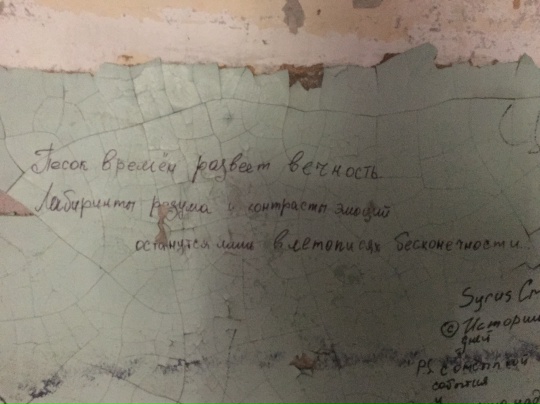 Песок времён развеет вечность
Лабиринты разума и контрасты эмоций
останутся лишь в летописях бесконечности.
Syrus
© Истории
дней
PS
события
и